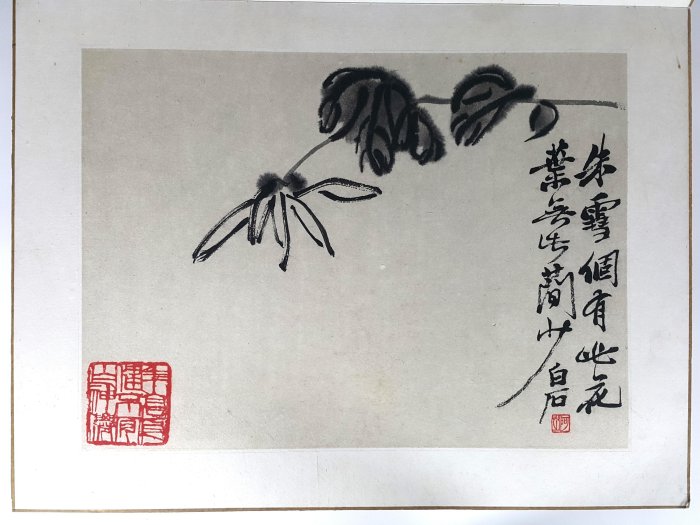 朱雪個有此花
葉無此簡少
白石